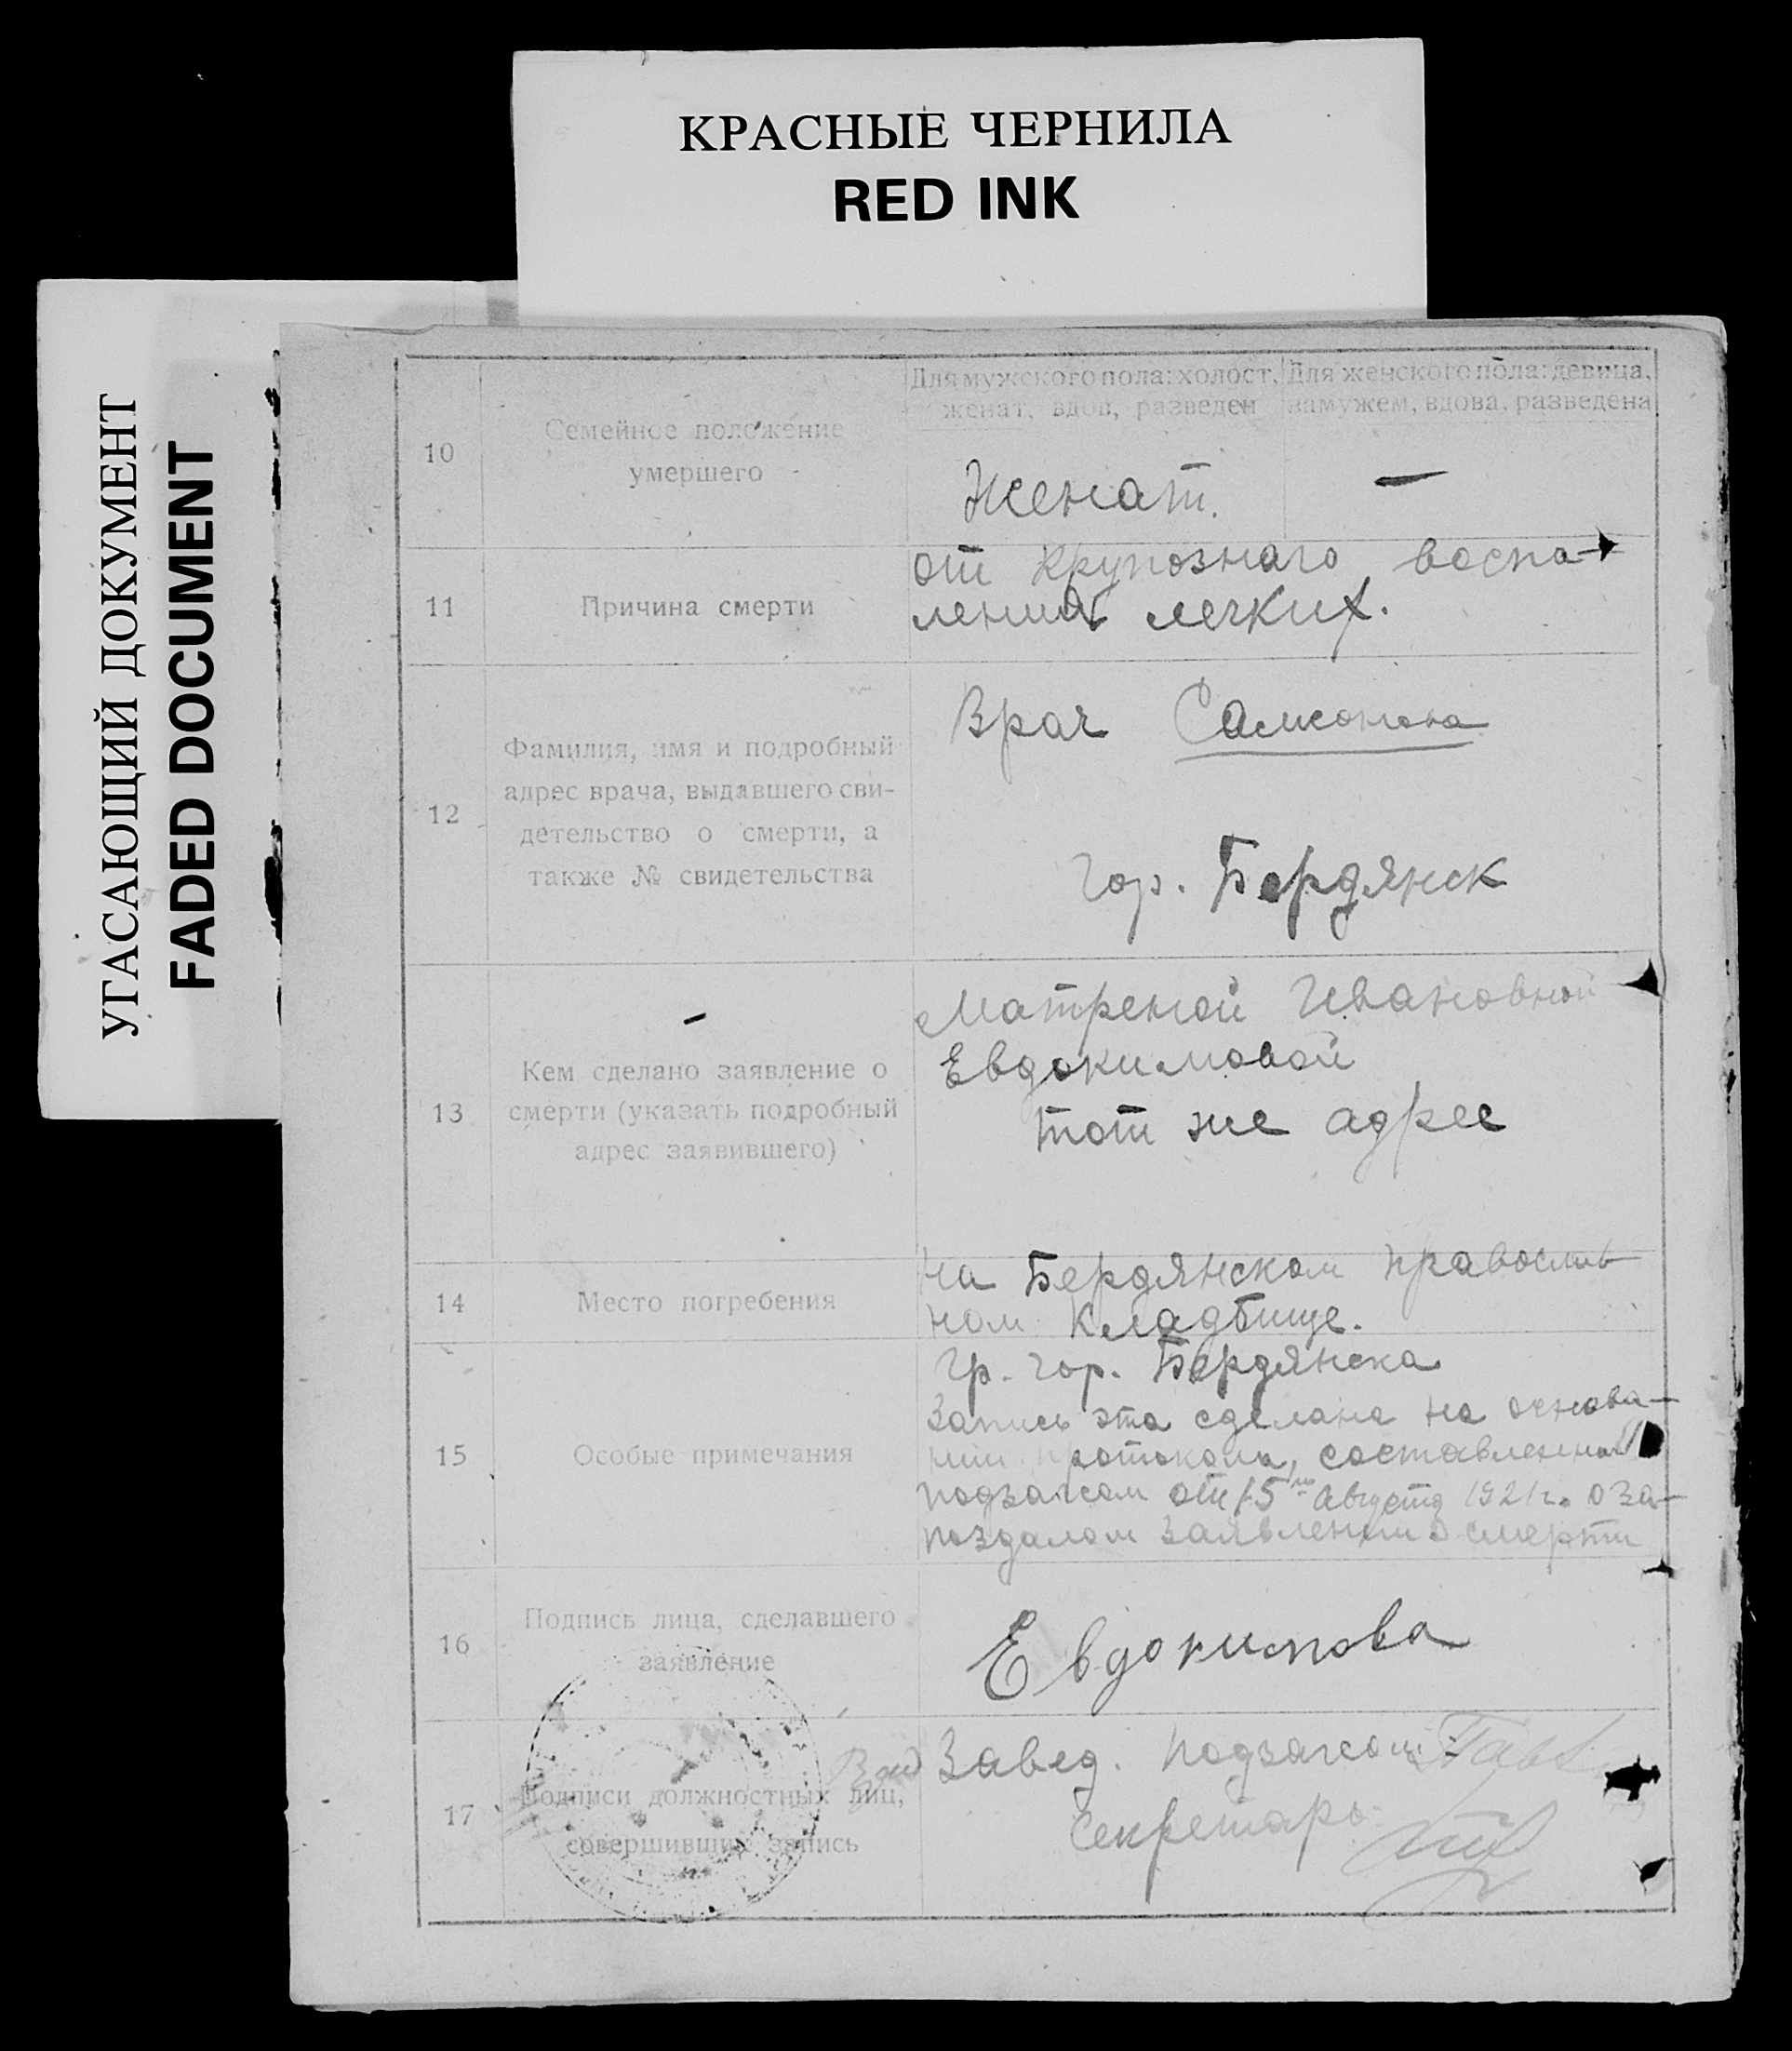 КРАСНЫЕ ЧЕРНИЛА
RED INK
УГАСАЮЩИЙ ДОКУМЕНТ
FADED DOCUMENT
10
Семейное положение
умершего
Для мужского пола: холост,
женат, вдов, разведен
Для женского пола: девица,
замужем, вдова, разведена
Женат.
—
11
Причина смерти
от крупознаго воспа-
ления легких.
12
Фамилия, имя и подробный
адрес врача, выдавшего сви-
детельство о смерти, а
также № свидетельства
Врач Самсонова
гор. Бердянск
13
Кем сделано заявление о
смерти (указать подробный
адрес заявившего)
Матреной Ивановной
Евдокимовой
тот же адрес
14
Место погребения
на Бердянском православ
ном кладбище.
15
Особые примечания
Гр. гор. Бердянска
Запись эта сделана на основа-
нии протокола, составленнаго
подзагсом от 15го Августа 1921 г. о за-
поздалом заявлении о смерти
16
Подпись лица, сделавшего
заявление
Евдокимова
17
Подписи должностных лиц,
совершивших запись
Завед. подзагсом
Секретарь